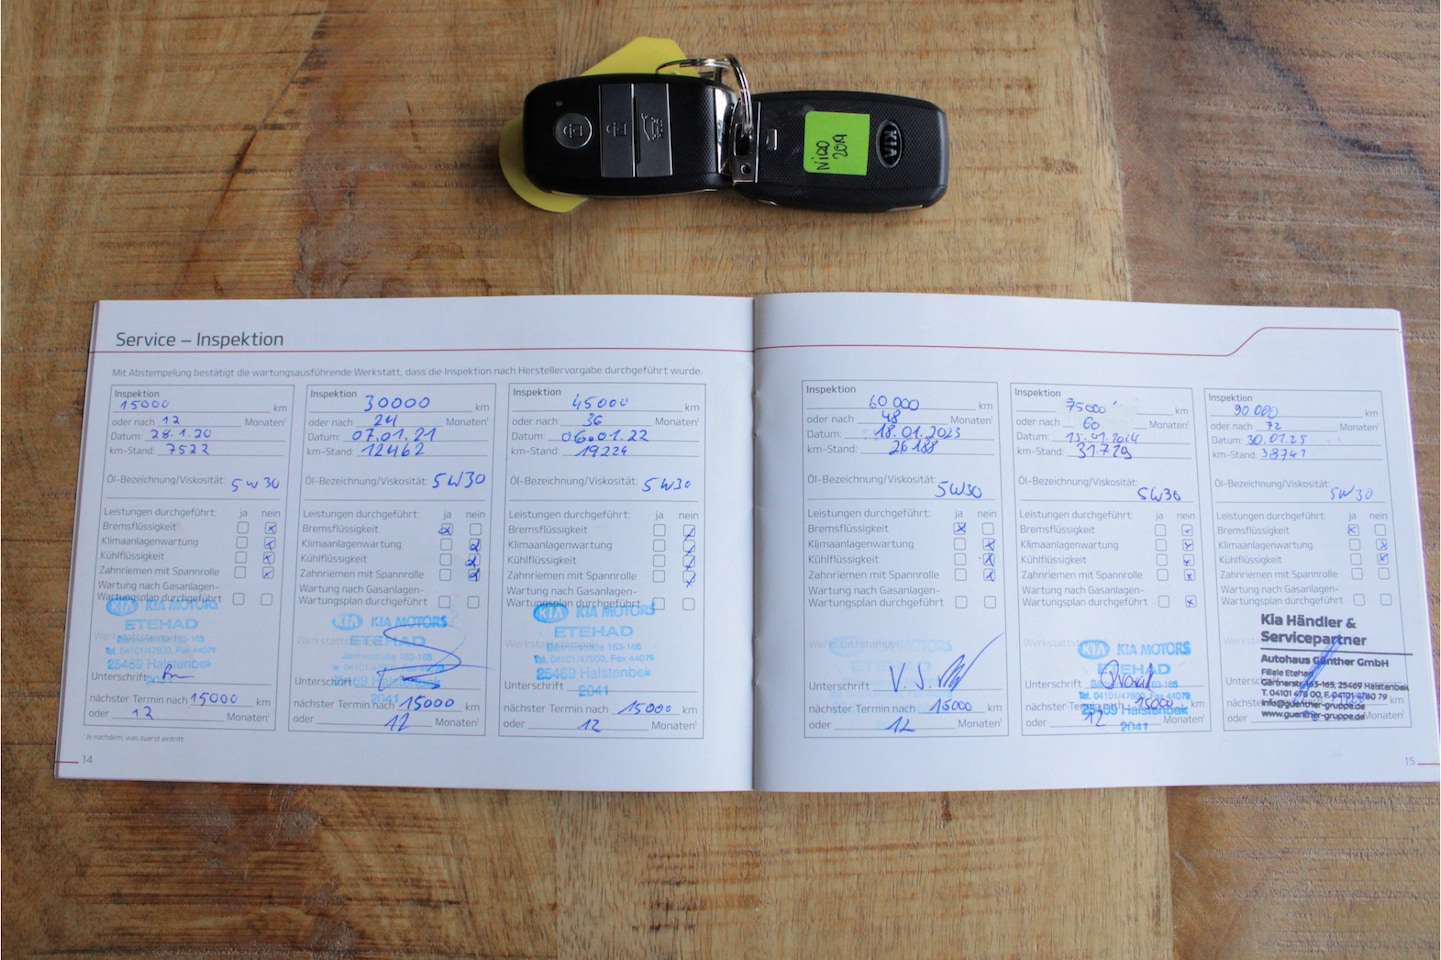 NIRO
2019
KIA
Service – Inspektion
Mit Abstempelung bestätigt die wartungsausführende Werkstatt, dass die Inspektion nach Herstellervorgabe durchgeführt wurde.
Inspektion
15000 km
oder nach 12 Monaten¹
Datum: 28.1.20
km-Stand: 7522
Öl-Bezeichnung/Viskosität: 5W30
Leistungen durchgeführt: ja nein
Bremsflüssigkeit
Klimaanlagenwartung
Kühlflüssigkeit
Zahnriemen mit Spannrolle
Wartung nach Gasanlagen-
Wartungsplan durchgeführt
KIA KIA MOTORS
ETEHAD
25469 Halstenbek
Unterschrift
nächster Termin nach 15000 km
oder 12 Monaten¹
Inspektion
30000 km
oder nach 24 Monaten¹
Datum: 07.01.21
km-Stand: 12462
Öl-Bezeichnung/Viskosität: 5W30
Leistungen durchgeführt: ja nein
Bremsflüssigkeit
Klimaanlagenwartung
Kühlflüssigkeit
Zahnriemen mit Spannrolle
Wartung nach Gasanlagen-
Wartungsplan durchgeführt
KIA KIA MOTORS
ETEHAD
25469 Halstenbek
2041
Unterschrift
nächster Termin nach 15000 km
oder 12 Monaten¹
Inspektion
45000 km
oder nach 36 Monaten¹
Datum: 06.01.22
km-Stand: 19224
Öl-Bezeichnung/Viskosität: 5W30
Leistungen durchgeführt: ja nein
Bremsflüssigkeit
Klimaanlagenwartung
Kühlflüssigkeit
Zahnriemen mit Spannrolle
Wartung nach Gasanlagen-
Wartungsplan durchgeführt
KIA KIA MOTORS
ETEHAD
Tel. 04101/47800, Fax 44079
25469 Halstenbek
Unterschrift 2041
nächster Termin nach 15000 km
oder 12 Monaten¹
¹ Je nachdem, was zuerst eintrifft.
14
Inspektion
60 000 km
oder nach 48 Monaten¹
Datum: 18.01.2023
km-Stand: 26188
Öl-Bezeichnung/Viskosität:
5W30
Leistungen durchgeführt: ja nein
Bremsflüssigkeit
Klimaanlagenwartung
Kühlflüssigkeit
Zahnriemen mit Spannrolle
Wartung nach Gasanlagen-
Wartungsplan durchgeführt
Unterschrift
nächster Termin nach 15000 km
oder 12 Monaten¹
Inspektion
75000 km
oder nach 60 Monaten¹
Datum: 15.01.2024
km-Stand: 31729
Öl-Bezeichnung/Viskosität:
5W30
Leistungen durchgeführt: ja nein
Bremsflüssigkeit
Klimaanlagenwartung
Kühlflüssigkeit
Zahnriemen mit Spannrolle
Wartung nach Gasanlagen-
Wartungsplan durchgeführt
KIA KIA MOTORS
ETEHAD
Unterschrift
Tel. 04101/47800, Fax 44079
nächster Termin nach 15000 km
25469 Halstenbek
oder 12 Monaten¹
2041
Inspektion
90 000 km
oder nach 72 Monaten¹
Datum: 30.01.25
km-Stand: 38741
Öl-Bezeichnung/Viskosität:
5W30
Leistungen durchgeführt: ja nein
Bremsflüssigkeit
Klimaanlagenwartung
Kühlflüssigkeit
Zahnriemen mit Spannrolle
Wartung nach Gasanlagen-
Wartungsplan durchgeführt
Kia Händler &
Servicepartner
Autohaus Günther GmbH
Filiale Etehad
Gärtnerstr. 163-165, 25469 Halstenbek
T. 04101 478 00, F. 04101 4780 79
info@guenther-gruppe.de
www.guenther-gruppe.de
15